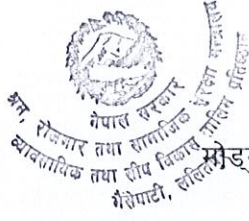 नेपाल सरकार
श्रम, रोजगार तथा सामाजिक सुरक्षा मन्त्रालय
व्यावसायिक तथा सीप विकास तालिम प्रतिष्ठान
भैंसेपाटी, ललितपुर
मोड